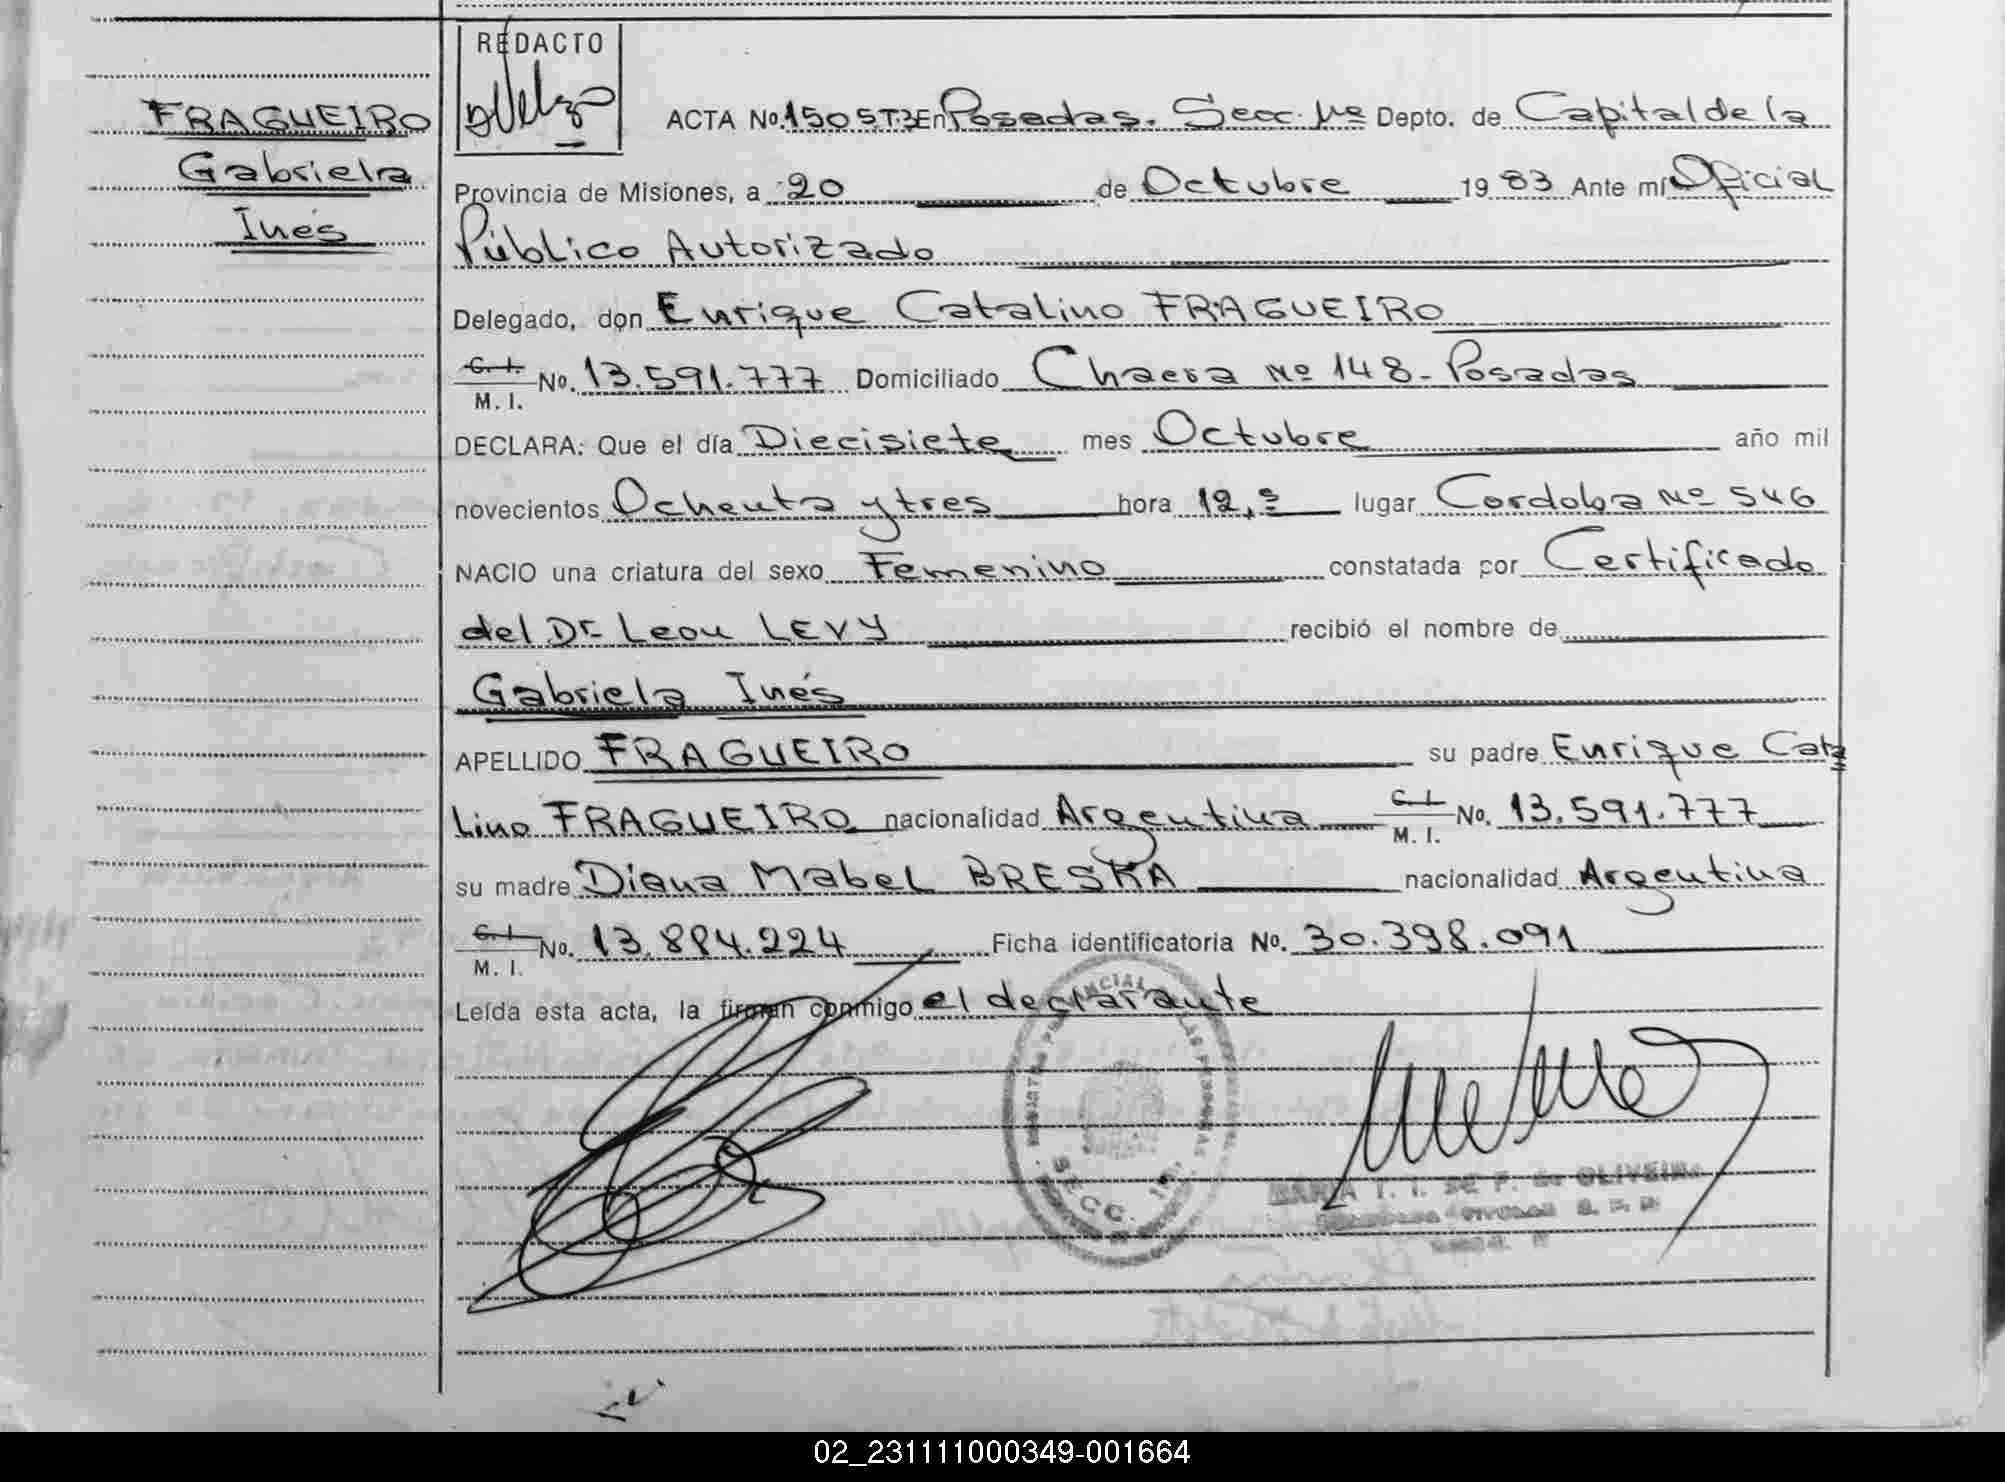 REDACTO
FRAGUEIRO
Gabriela
Inés
ACTA No. 1505 T:3 En Posadas. Secc. 1ª Depto. de Capital de la
Provincia de Misiones, a 20 de Octubre 1983 Ante mí Oficial
Público Autorizado
Delegado, don Enrique Catalino FRAGUEIRO
C.I. M.I. No. 13.591.777 Domiciliado Chacra Nº 148 - Posadas
DECLARA: Que el día Diecisiete mes Octubre año mil
novecientos Ochenta y tres hora 12,⁵ lugar Cordoba Nº 546
NACIO una criatura del sexo Femenino constatada por Certificado
del Dr. Leon LEVY recibió el nombre de
Gabriela Inés
APELLIDO FRAGUEIRO su padre Enrique Cata
lino FRAGUEIRO nacionalidad Argentina C.I. M.I. No. 13.591.777
su madre Diana Mabel BRESKA nacionalidad Argentina
C.I. M.I. No. 13.884.224 Ficha identificatoria No. 30.398.091
Leída esta acta, la firman conmigo el declarante
SECC. 1ª
MARIA T. I. DE F. de OLIVEIRA
02_231111000349-001664